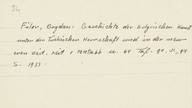 Filow, Bogdan: Geschichte der bulgarischen Kunst
unter der Türkischen Herrschaft und in der neue-
ren Zeit. Mit 1 u. 64 Taf. 
S. 1933